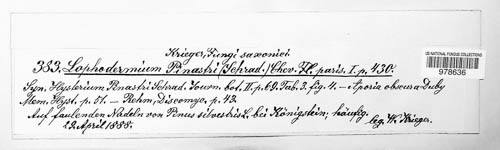 Krieger, Fungi saxonici.
383. Lophodermium Pinastri (Schrad.) Chev. Fl. paris. I. p. 430.
Syn. Hysterium Pinastri Schrad. Journ. bot. II. p. 69. Tab. 3. fig. 4. — Aporia obscura Duby
Mem. Hyst. p. 51. — Rehm, Discomyc. p. 43.
Auf faulenden Nadeln von Pinus silvestris L. bei Königstein; häufig.
23. April 1888. leg. W. Krieger.
US NATIONAL FUNGUS COLLECTIONS
978636